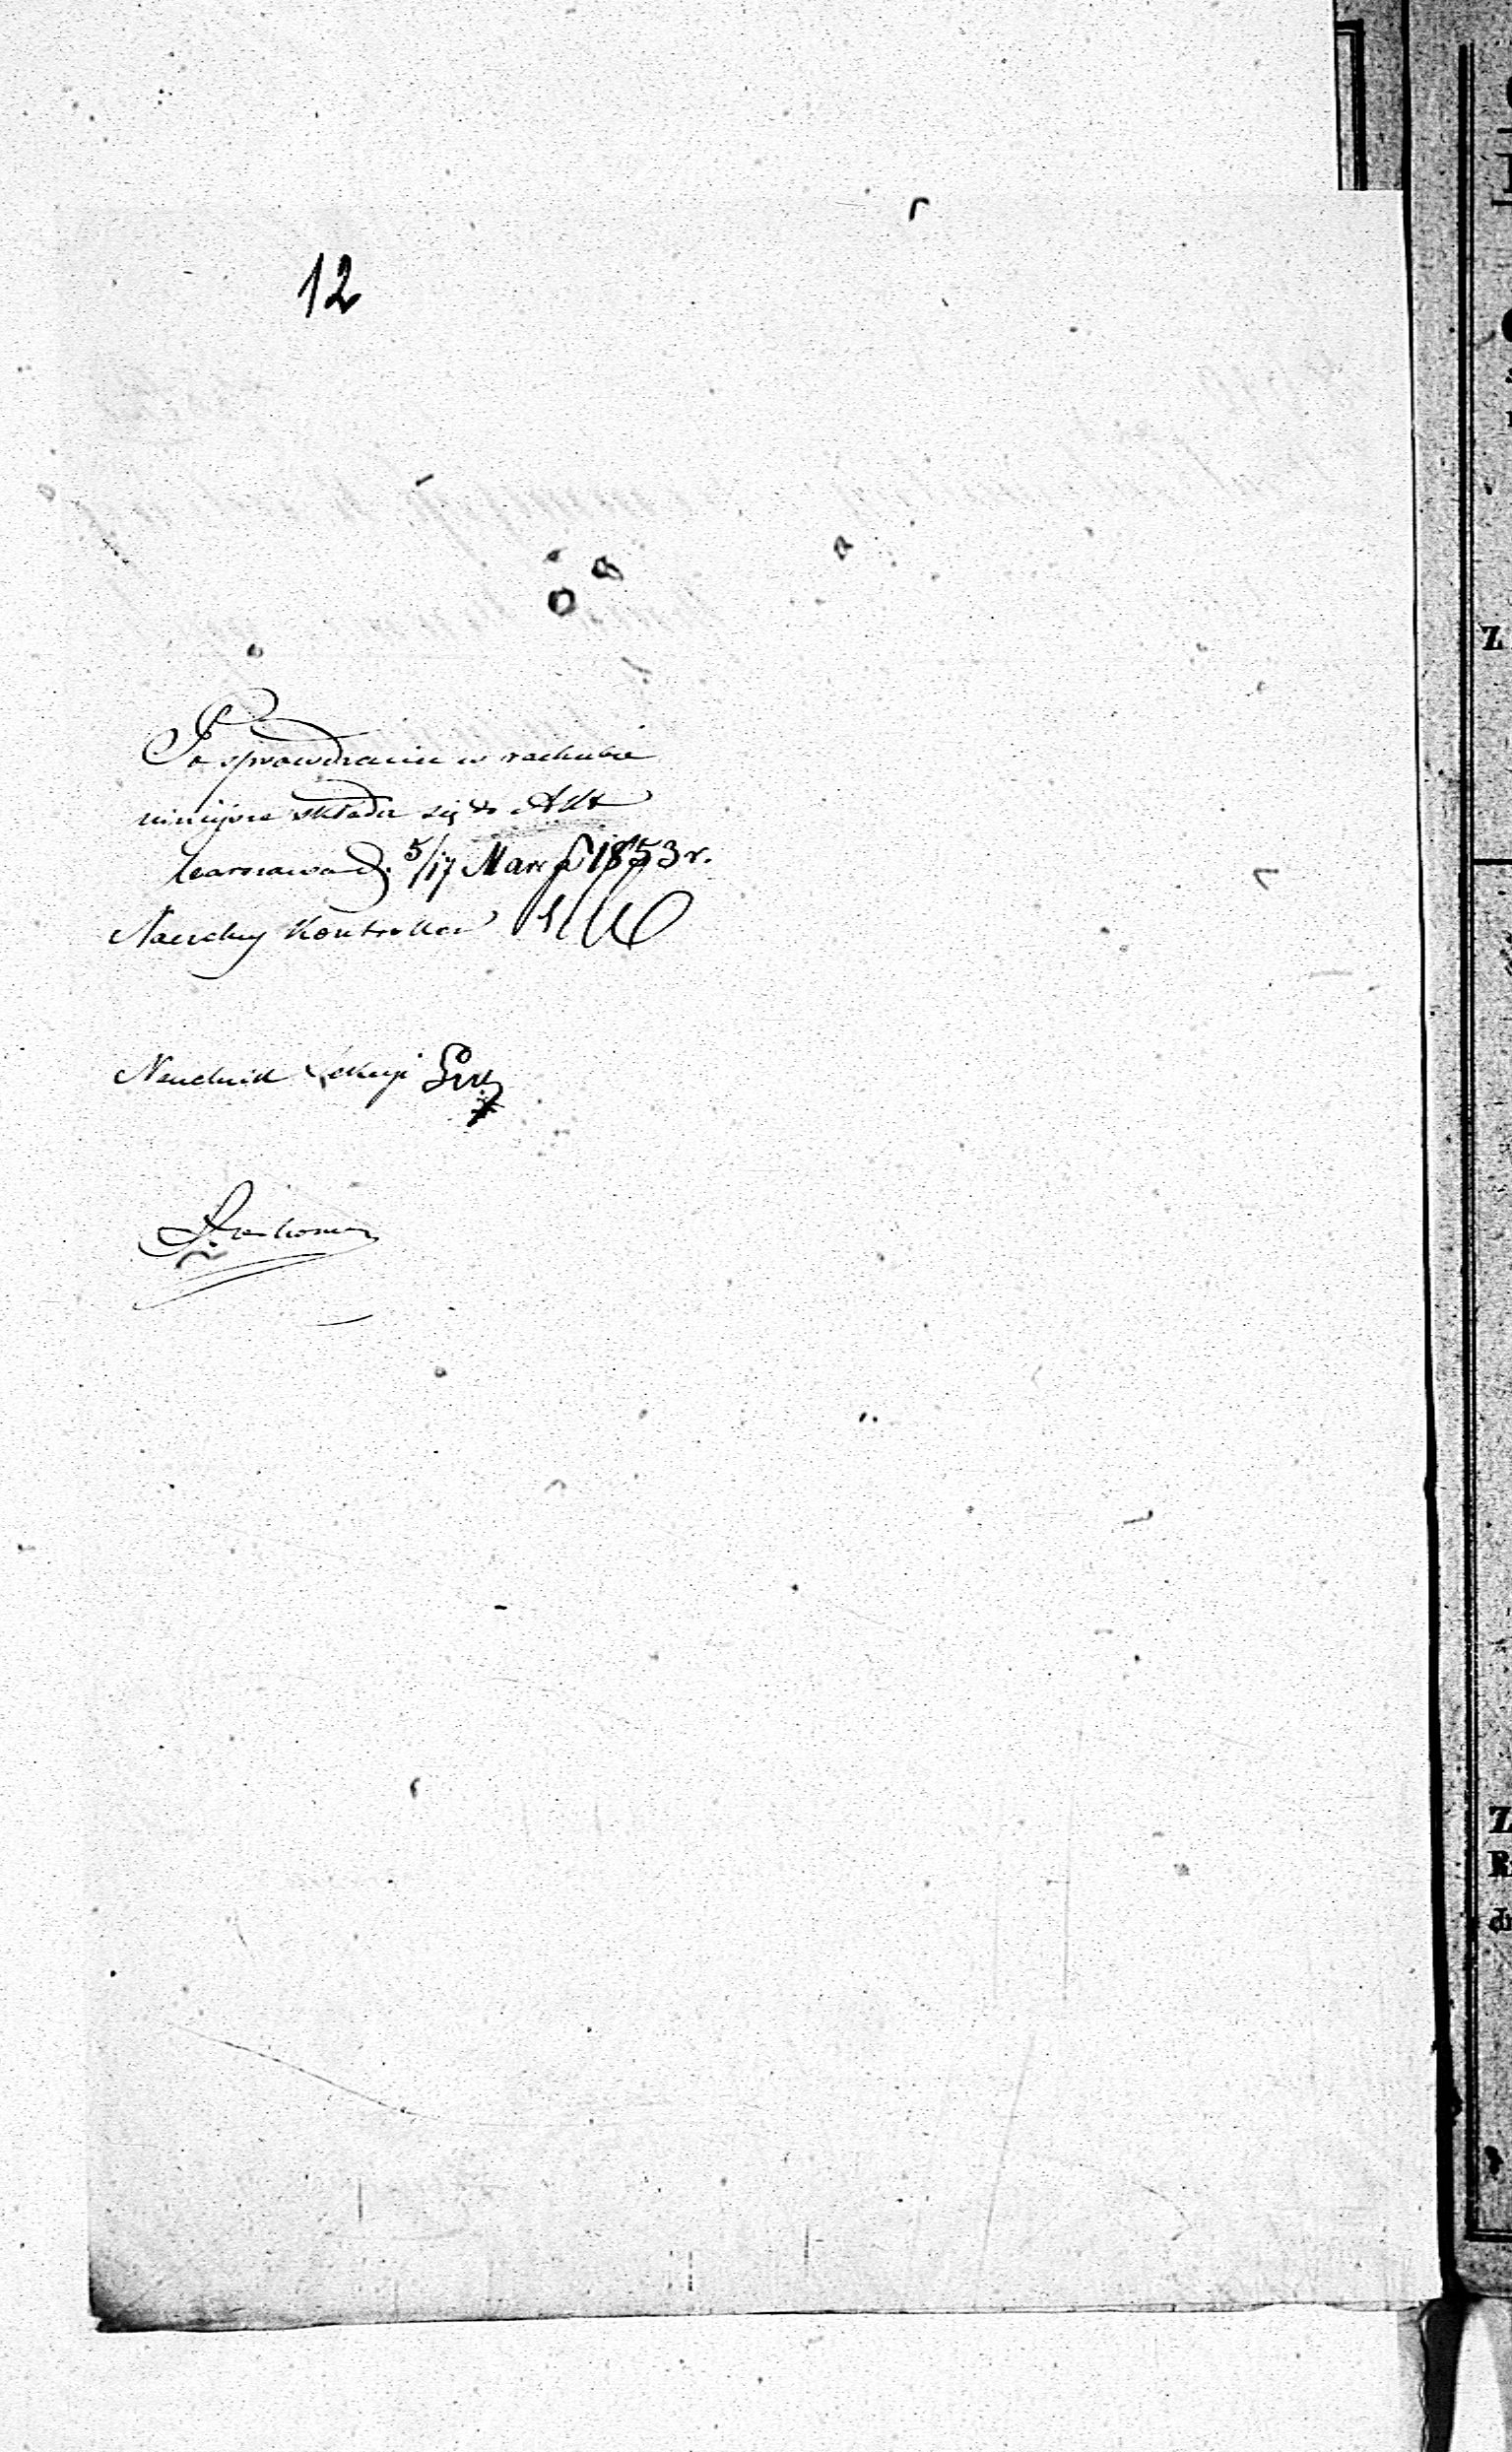 12
Po sprawdzeniu w rachubie
niniejsze składa się do Akt
Warszawa d. 5/17 Marca 1853 r.
Naczelny Kontroller
Naczelnik Sekcyi
Z
Z
R